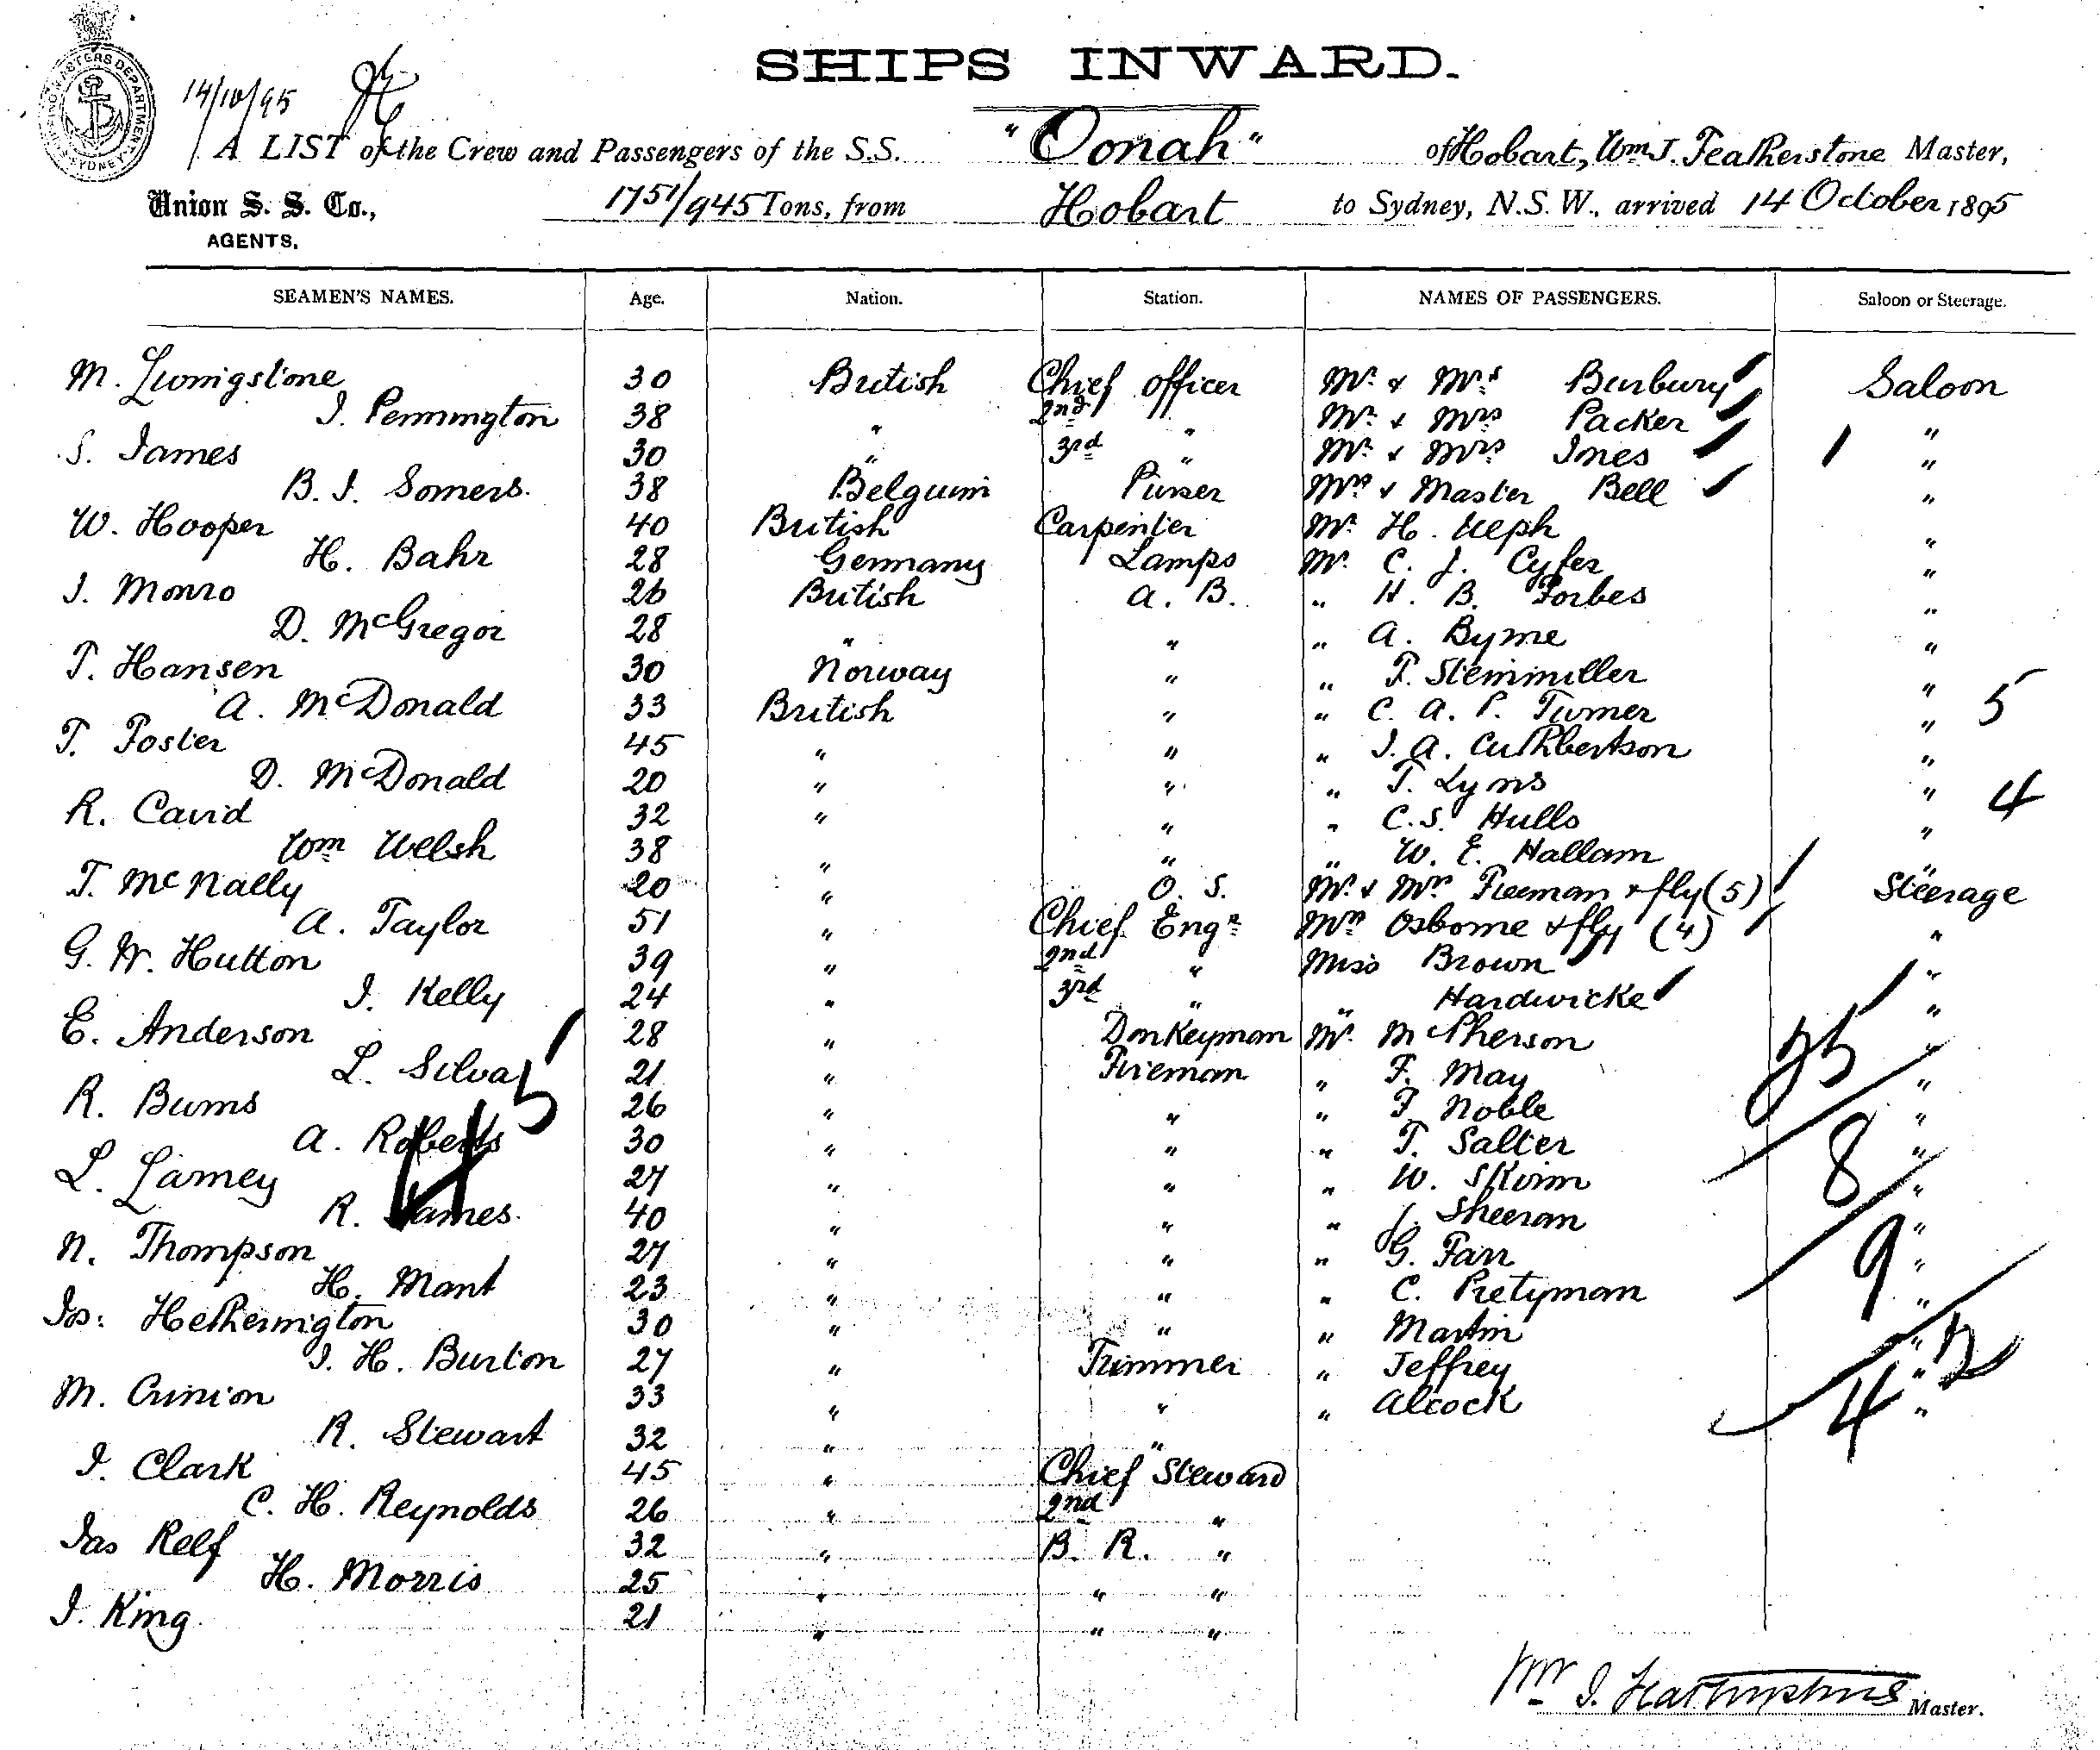 SHIPS INWARD.
14/10/95
A LIST of the Crew and Passengers of the S.S. "Oonah" of Hobart, Wm J. Featherstone Master,
Union S. S. Co., 1751/945 Tons, from Hobart to Sydney, N.S.W., arrived 14 October 1895
AGENTS.
SEAMEN'S NAMES. Age. Nation. Station. NAMES OF PASSENGERS. Saloon or Steerage.
M. Livingstone 30 British Chief Officer Mr & Mrs Burbury Saloon
J. Pennington 38 " 2nd " Mr & Mrs Packer "
S. James 30 " 3rd " Mr & Mrs Ines 1 "
B. J. Somers. 38 Belguim Purser Mrs & Master Bell "
W. Hooper 40 British Carpenter Mr. H. "
H. Bahr 28 Germany Lamps Mr. C. J. Cyfer "
J. Monro 26 British A. B. " H. B. Forbes "
D. McGregor 28 " " " A. Byrne "
T. Hansen 30 Norway " " F. Steinmiller "
A. McDonald 33 British " " C. A. P. Turner " 5
T. Foster 45 " " " J. A. Cuthbertson "
D. McDonald 20 " " " T. Lyons " 4
R. Cavid 32 " " " C. S. Hulls "
Wm Welsh 38 " " " W. E. Hallam "
T. McNally 20 " O. S. Mr. & Mrs Freeman & fly (5) Steerage
A. Taylor 51 " Chief Engr Mrs Osborne & fly (4) "
G. W. Hutton 39 " 2nd " Miss Brown "
J. Kelly 24 " 3rd " " Hardwicke "
E. Anderson 28 " Donkeyman Mr. McPherson "
L. Silva 21 " Fireman " F. May 25 "
R. Burns 26 " " " F Noble "
A. Roberts 30 " " " T. Salter "
L. Larney 27 " " " W. Skirm 8 "
R. James. 40 " " " J. Sheeran "
N. Thompson 27 " " " G. Farr 9 "
H. Mant 23 " " " C. Pretyman "
Js: Hetherington 30 " " " Martin "
J. H. Burton 27 " Trimmer " Jeffrey "
M. Crinion 33 " " " Alcock 42 "
R. Stewart 32 " "
J. Clark 45 " Chief Steward
C. H. Reynolds 26 " 2nd "
Jas Relf 32 " B. R. "
H. Morris 25 " " "
J. King. 21 " " "
Wm J. Featherstone Master.